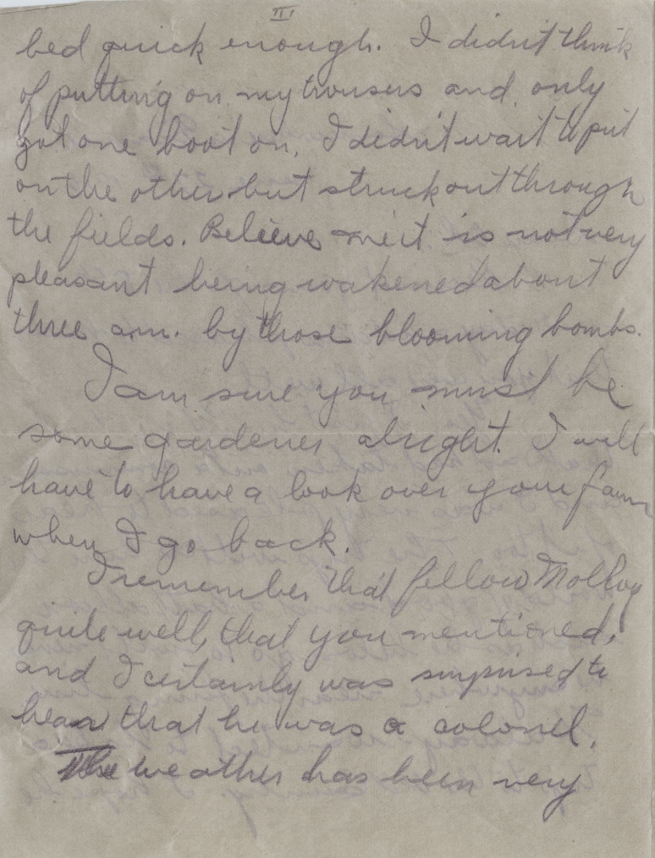 III
bed quick enough. I didn't think
of putting on my trousers and only
got one boot on. I didn't wait to put
on the other but struck out through
the fields. Believe me it is not very
pleasant being wakened about
three a.m. by those blooming bombs.
I am sure you must be
some gardener alright. I will
have to have a look over your farm
when I go back.
I remember that fellow Molloy
quite well, that you mentioned,
and I certainly was surprised to
hear that he was a colonel.
The weather has been very